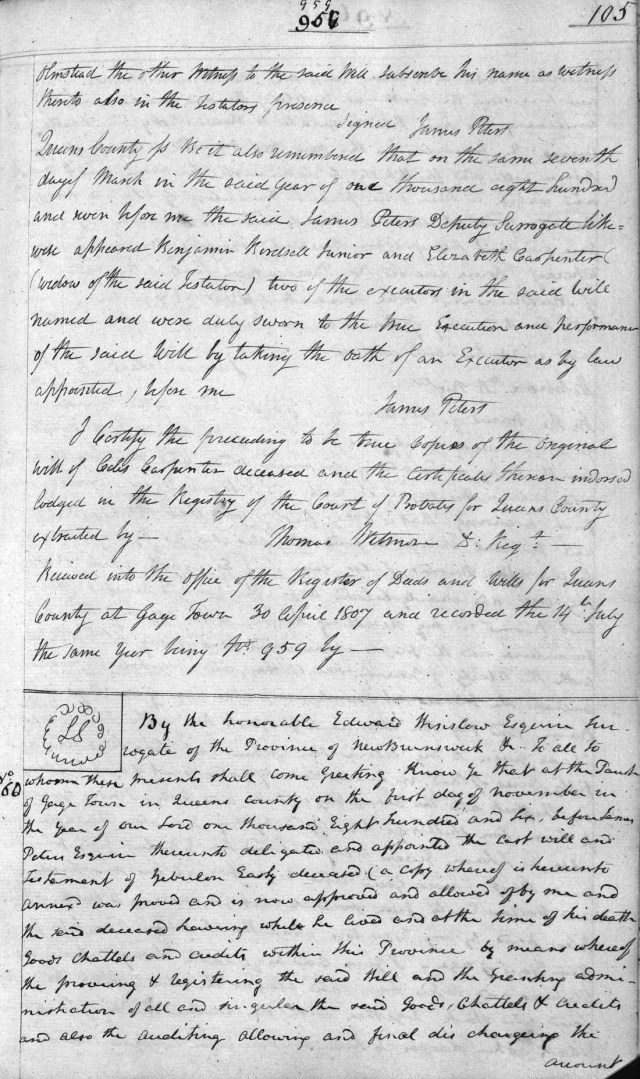 959
105
Olmstead the other Witness to the said Will Subscribe his name as witness
thereto also in the Testators presence
Signed James Peters
Queens County ss Be it also remembered that on the same seventh
day of March in the said year of one thousand eight hundred
and seven before me the said James Peters Deputy Surrogate like=
wise appeared Benjamin Birdsell Junior and Elizabeth Carpenter
(widow of the said Testator) two of the executors in the said will
named and were duly sworn to the true Execution and performance
of the said Will by taking the oath of an Executor as by law
appointed, before me
James Peters
I Certify the preceeding to be true Copies of the Original
will of Carpenter deceased and the Certificates thereon indorsed
lodged in the Registry of the Court of Probates for Queens County
extracted by — Thomas Wetmore D: Regr. —
Received into the office of the Register of Deeds and Wills for Queens
County at Gage Town 30 April 1807 and recorded the 14th July
the same year being No 959 by —
LS
By the honorable Edward Winslow Esquire Sur-
rogate of the Province of New Brunswick &c. To all to
No 60
whom these presents shall come Greeting Know Ye that at the Parish
of Gage Town in Queens county on the first day of november in
the year of our Lord one thousand Eight hundred and Six, before James
Peters Esquire thereunto deligated and appointed the last will and
Testament of Zebulon Easty deceased (a Copy whereof is hereunto
annexd was proved and is now approved and allowed of by me and
the said deceased haveing while he lived and at the time of his death
Goods Chattels and credits within this Province by means whereof
the proveing & registering the said Will and the Granting admi-
nistration of all and singular the said Goods, Chattels & Credits
and also the auditing allowing and final dischargeing the
account